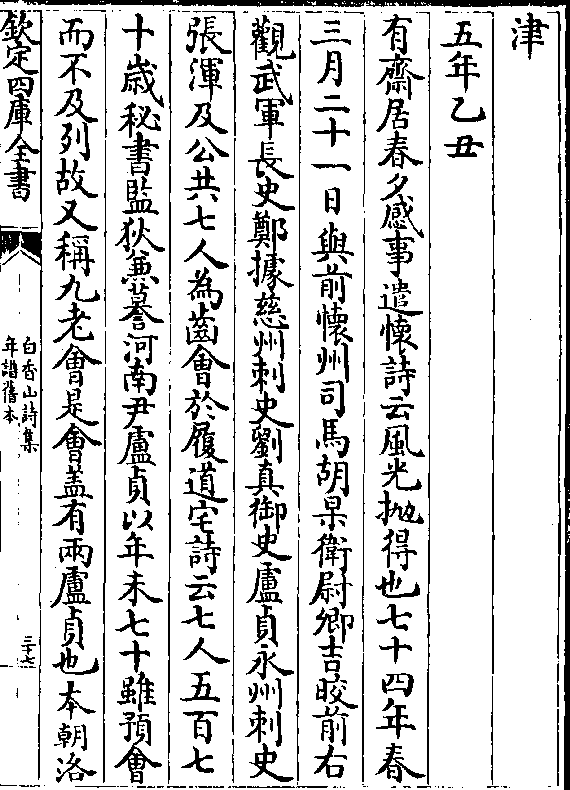 津
五年乙丑
有齋居春夕感事遣懷詩云風光抛得也七十四年春
三月二十一日與前懷州司馬胡杲衛尉卿吉皎前右
觀武軍長史鄭據慈州刺史劉真御史盧貞永州刺史
張渾及公共七人為齒會於履道宅詩云七人五百七
十歲秘書監狄兼謩河南尹盧貞以年未七十雖預會
而不及列故又稱九老會是會盖有兩盧貞也本朝洛
欽定四庫全書
白香山詩集
年譜舊本
三十七